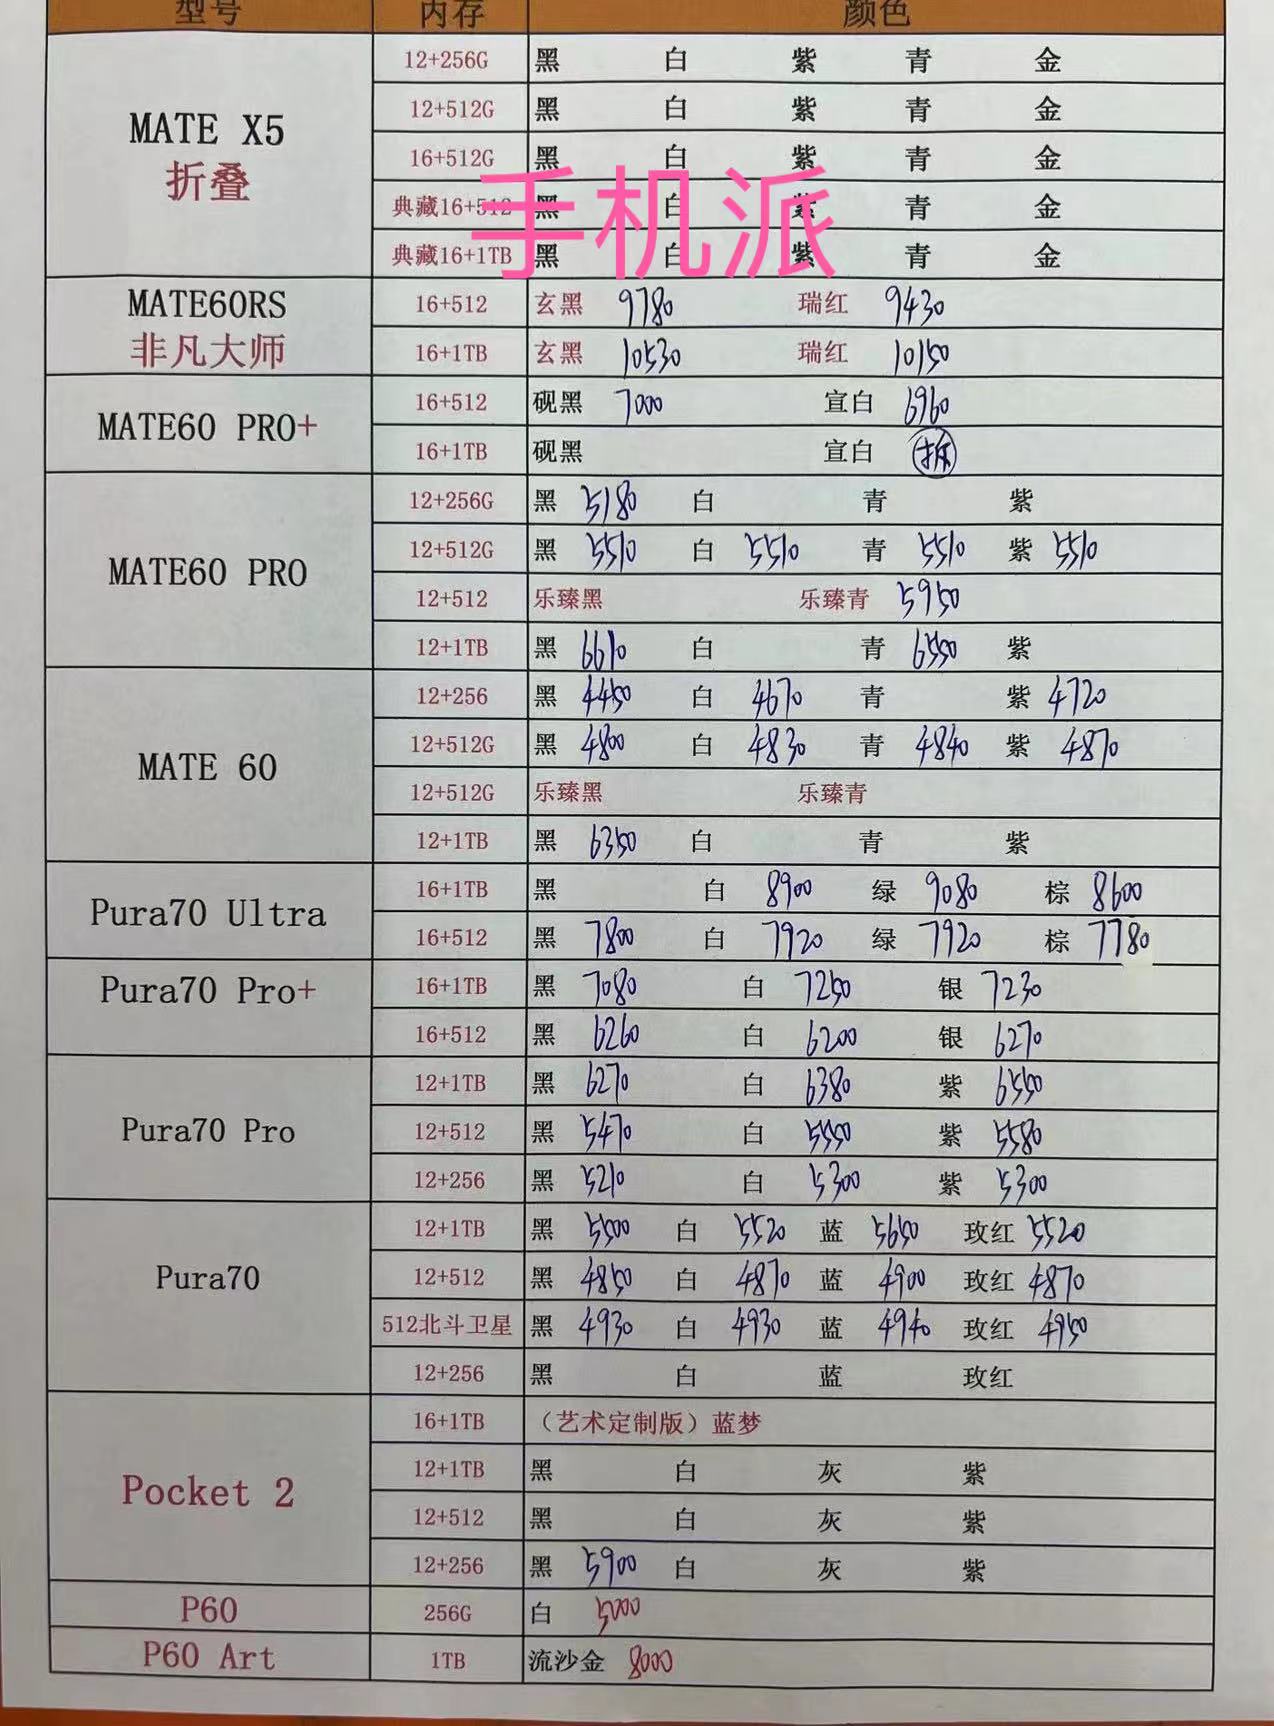 型号 内存 颜色
MATE X5
折叠
12+256G 黑 白 紫 青 金
12+512G 黑 白 紫 青 金
16+512G 黑 白 紫 青 金
手机派
典藏16+512 黑 白 紫 青 金
典藏16+1TB 黑 白 紫 青 金
MATE60RS
非凡大师
16+512 玄黑 9780 瑞红 9430
16+1TB 玄黑 10530 瑞红 10150
MATE60 PRO+
16+512 砚黑 7000 宣白 6960
16+1TB 砚黑 宣白 拆
MATE60 PRO
12+256G 黑 5180 白 青 紫
12+512G 黑 5510 白 5510 青 5510 紫 5510
12+512 乐臻黑 乐臻青 5950
12+1TB 黑 6610 白 青 6550 紫
MATE 60
12+256 黑 4450 白 4670 青 紫 4720
12+512G 黑 4800 白 4830 青 4840 紫 4870
12+512G 乐臻黑 乐臻青
12+1TB 黑 6350 白 青 紫
Pura70 Ultra
16+1TB 黑 白 8900 绿 9080 棕 8600
16+512 黑 7800 白 7920 绿 7920 棕 7780
Pura70 Pro+
16+1TB 黑 7080 白 7250 银 7230
16+512 黑 6260 白 6200 银 6270
Pura70 Pro
12+1TB 黑 6270 白 6380 紫 6550
12+512 黑 5470 白 5550 紫 5580
12+256 黑 5210 白 5300 紫 5300
Pura70
12+1TB 黑 5500 白 5520 蓝 5650 玫红 5520
12+512 黑 4850 白 4870 蓝 4900 玫红 4870
512北斗卫星 黑 4930 白 4930 蓝 4940 玫红 4950
12+256 黑 白 蓝 玫红
Pocket 2
16+1TB （艺术定制版）蓝梦
12+1TB 黑 白 灰 紫
12+512 黑 白 灰 紫
12+256 黑 5900 白 灰 紫
P60 256G 白 5000
P60 Art 1TB 流沙金 8000